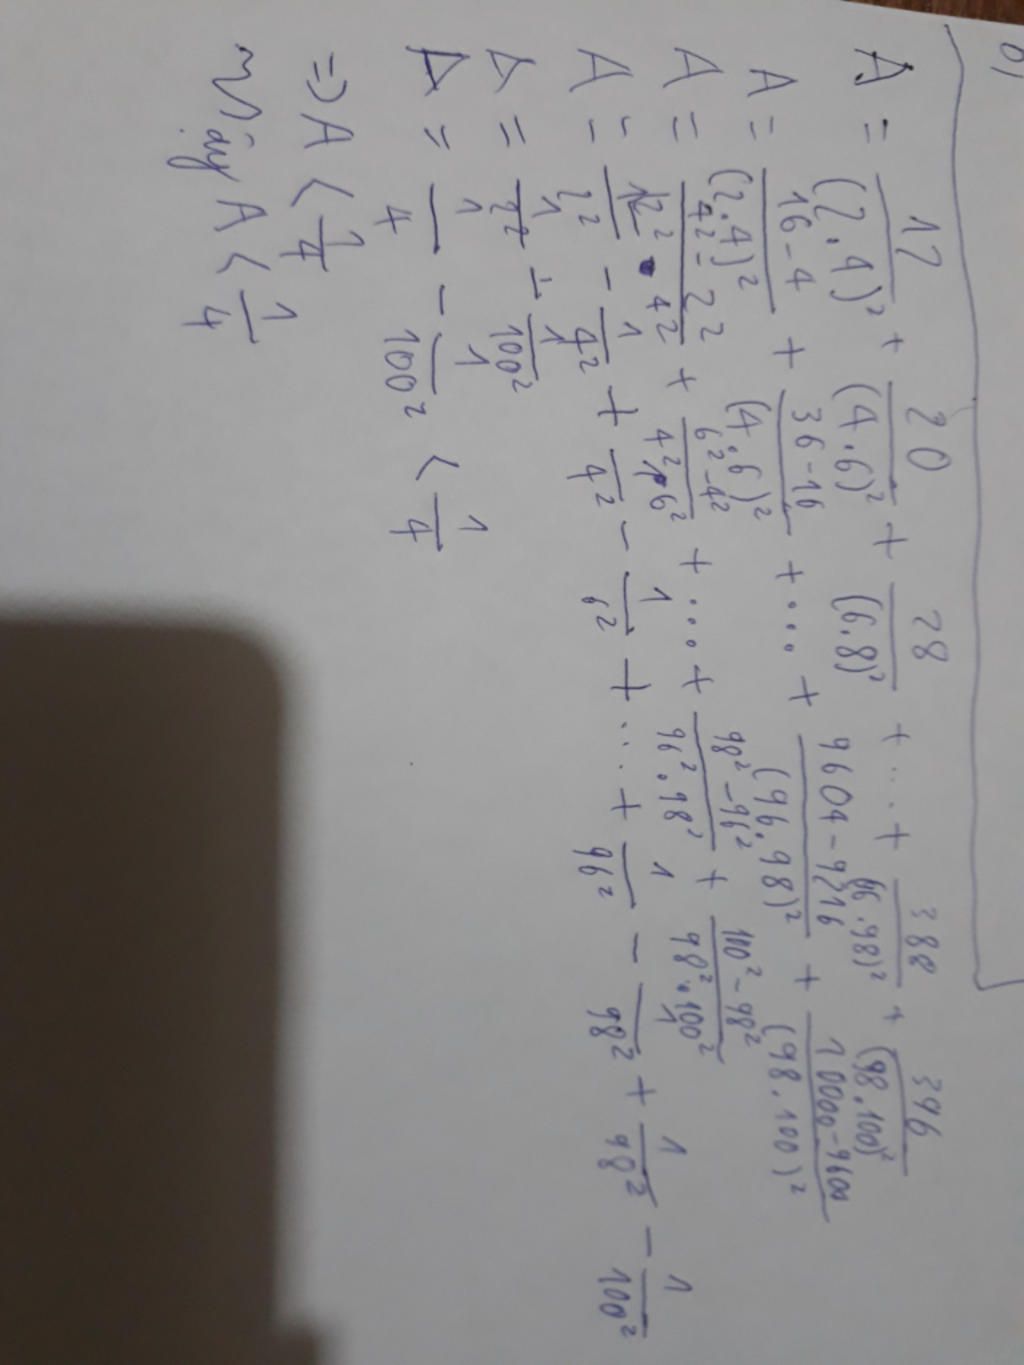 b)
A = 12/(2.4)² + 20/(4.6)² + 28/(6.8)² + ... + 388/(96.98)² + 396/(98.100)²
A = 16-4/(2.4)² + 36-16/(4.6)² + ... + 9604-9216/(96.98)² + 10000-9600/(98.100)²
A = 4²-2²/2².4² + 6²-4²/4².6² + ... + 98²-96²/96².98² + 100²-98²/98².100²
A = 1/2² - 1/4² + 1/4² - 1/6² + ... + 1/96² - 1/98² + 1/98² - 1/100²
A = 1/2² - 1/100²
A = 1/4 - 1/100² < 1/4
=> A < 1/4
Vậy A < 1/4